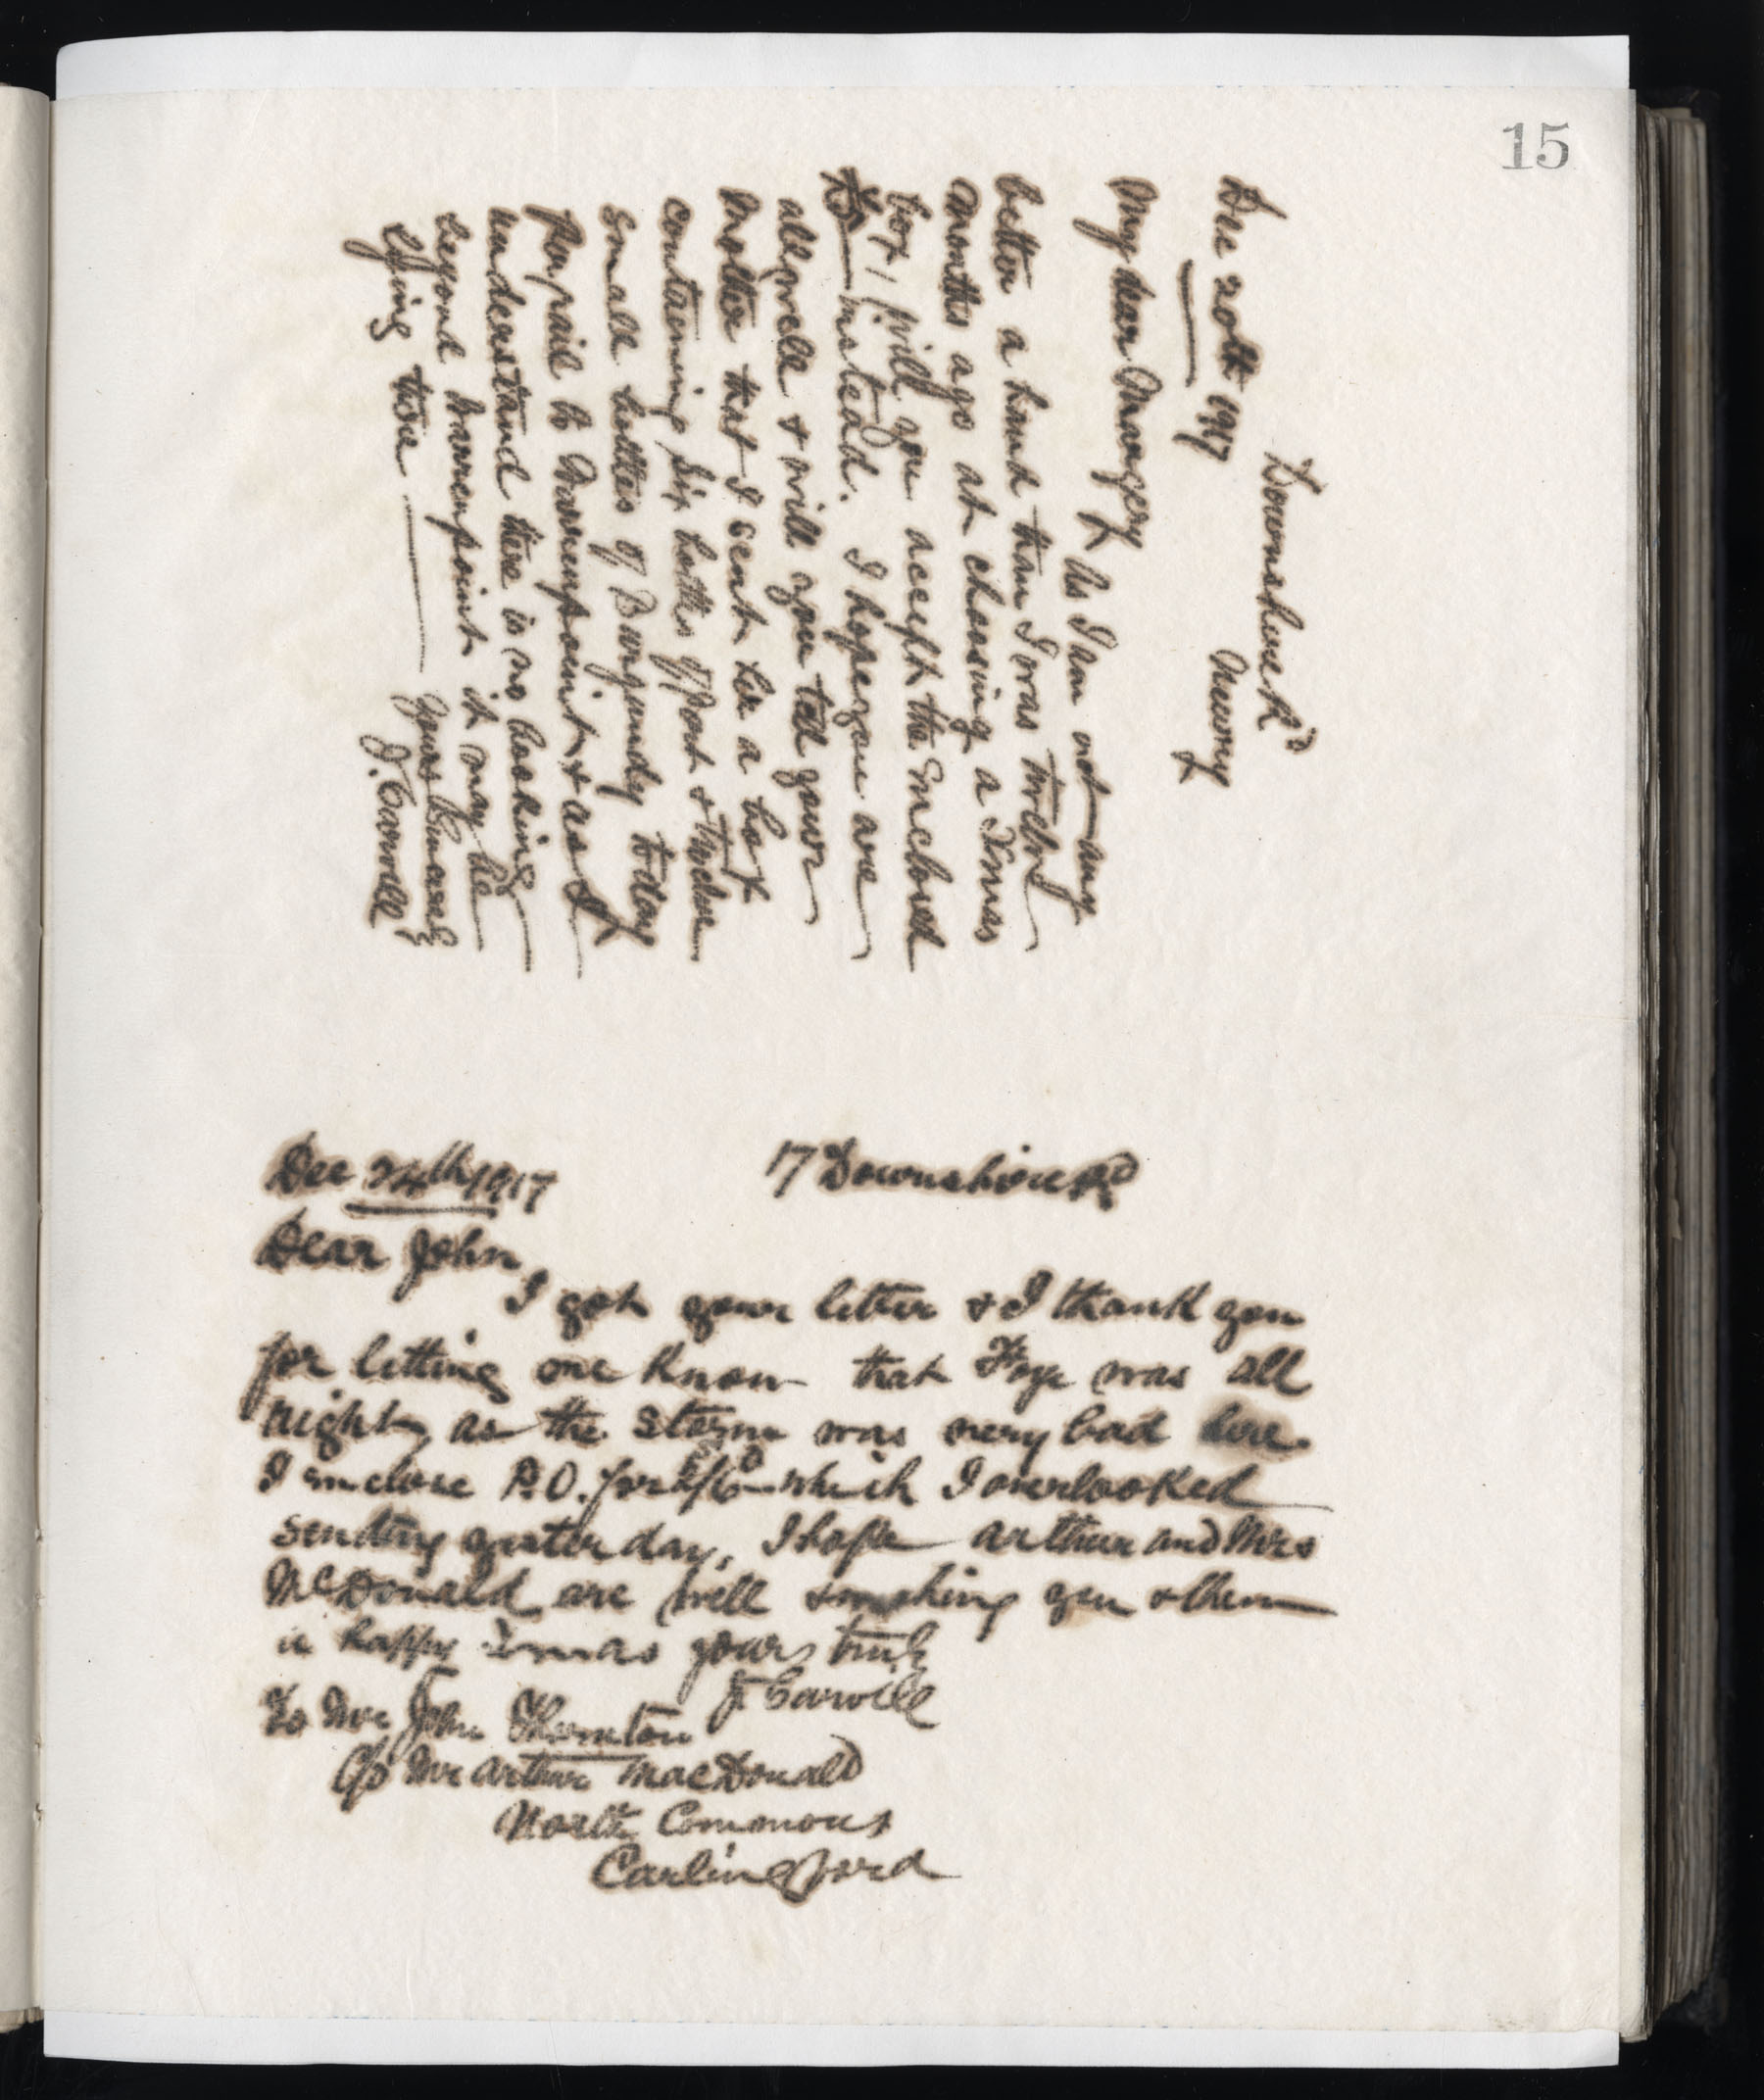 15
Downshire Rd
Newry
Dec 20th 1917
My dear Margery
As I am not any
better a hand than I was twelve
months ago at choosing a Xmas
box, will you accept the Enclosed
instead. I hope you are
all well & will you tell your
Mother that I sent her a box
containing Six bottles of Port & twelve
Small bottles of Burgundy today
per rail to Warrenpoint & as I
understand there is no booking
beyond Warrenpoint it may be
lying there
yours Sincerely
J. Carvill
Dec 24th 1917 17 Downshire Rd
Dear John,
I got your letter & I thank you
for letting me Know that was all
right, as the storm was very bad here.
I enclose P.O. for which I overlooked
sending yesterday, I hope Arthur and Mrs
McDonald are well & wishing you & them
a happy Xmas yours truly
J Carvill
To Mr John Thornton
C/o Mr Arthur MacDonald
North Commons
Carlingford